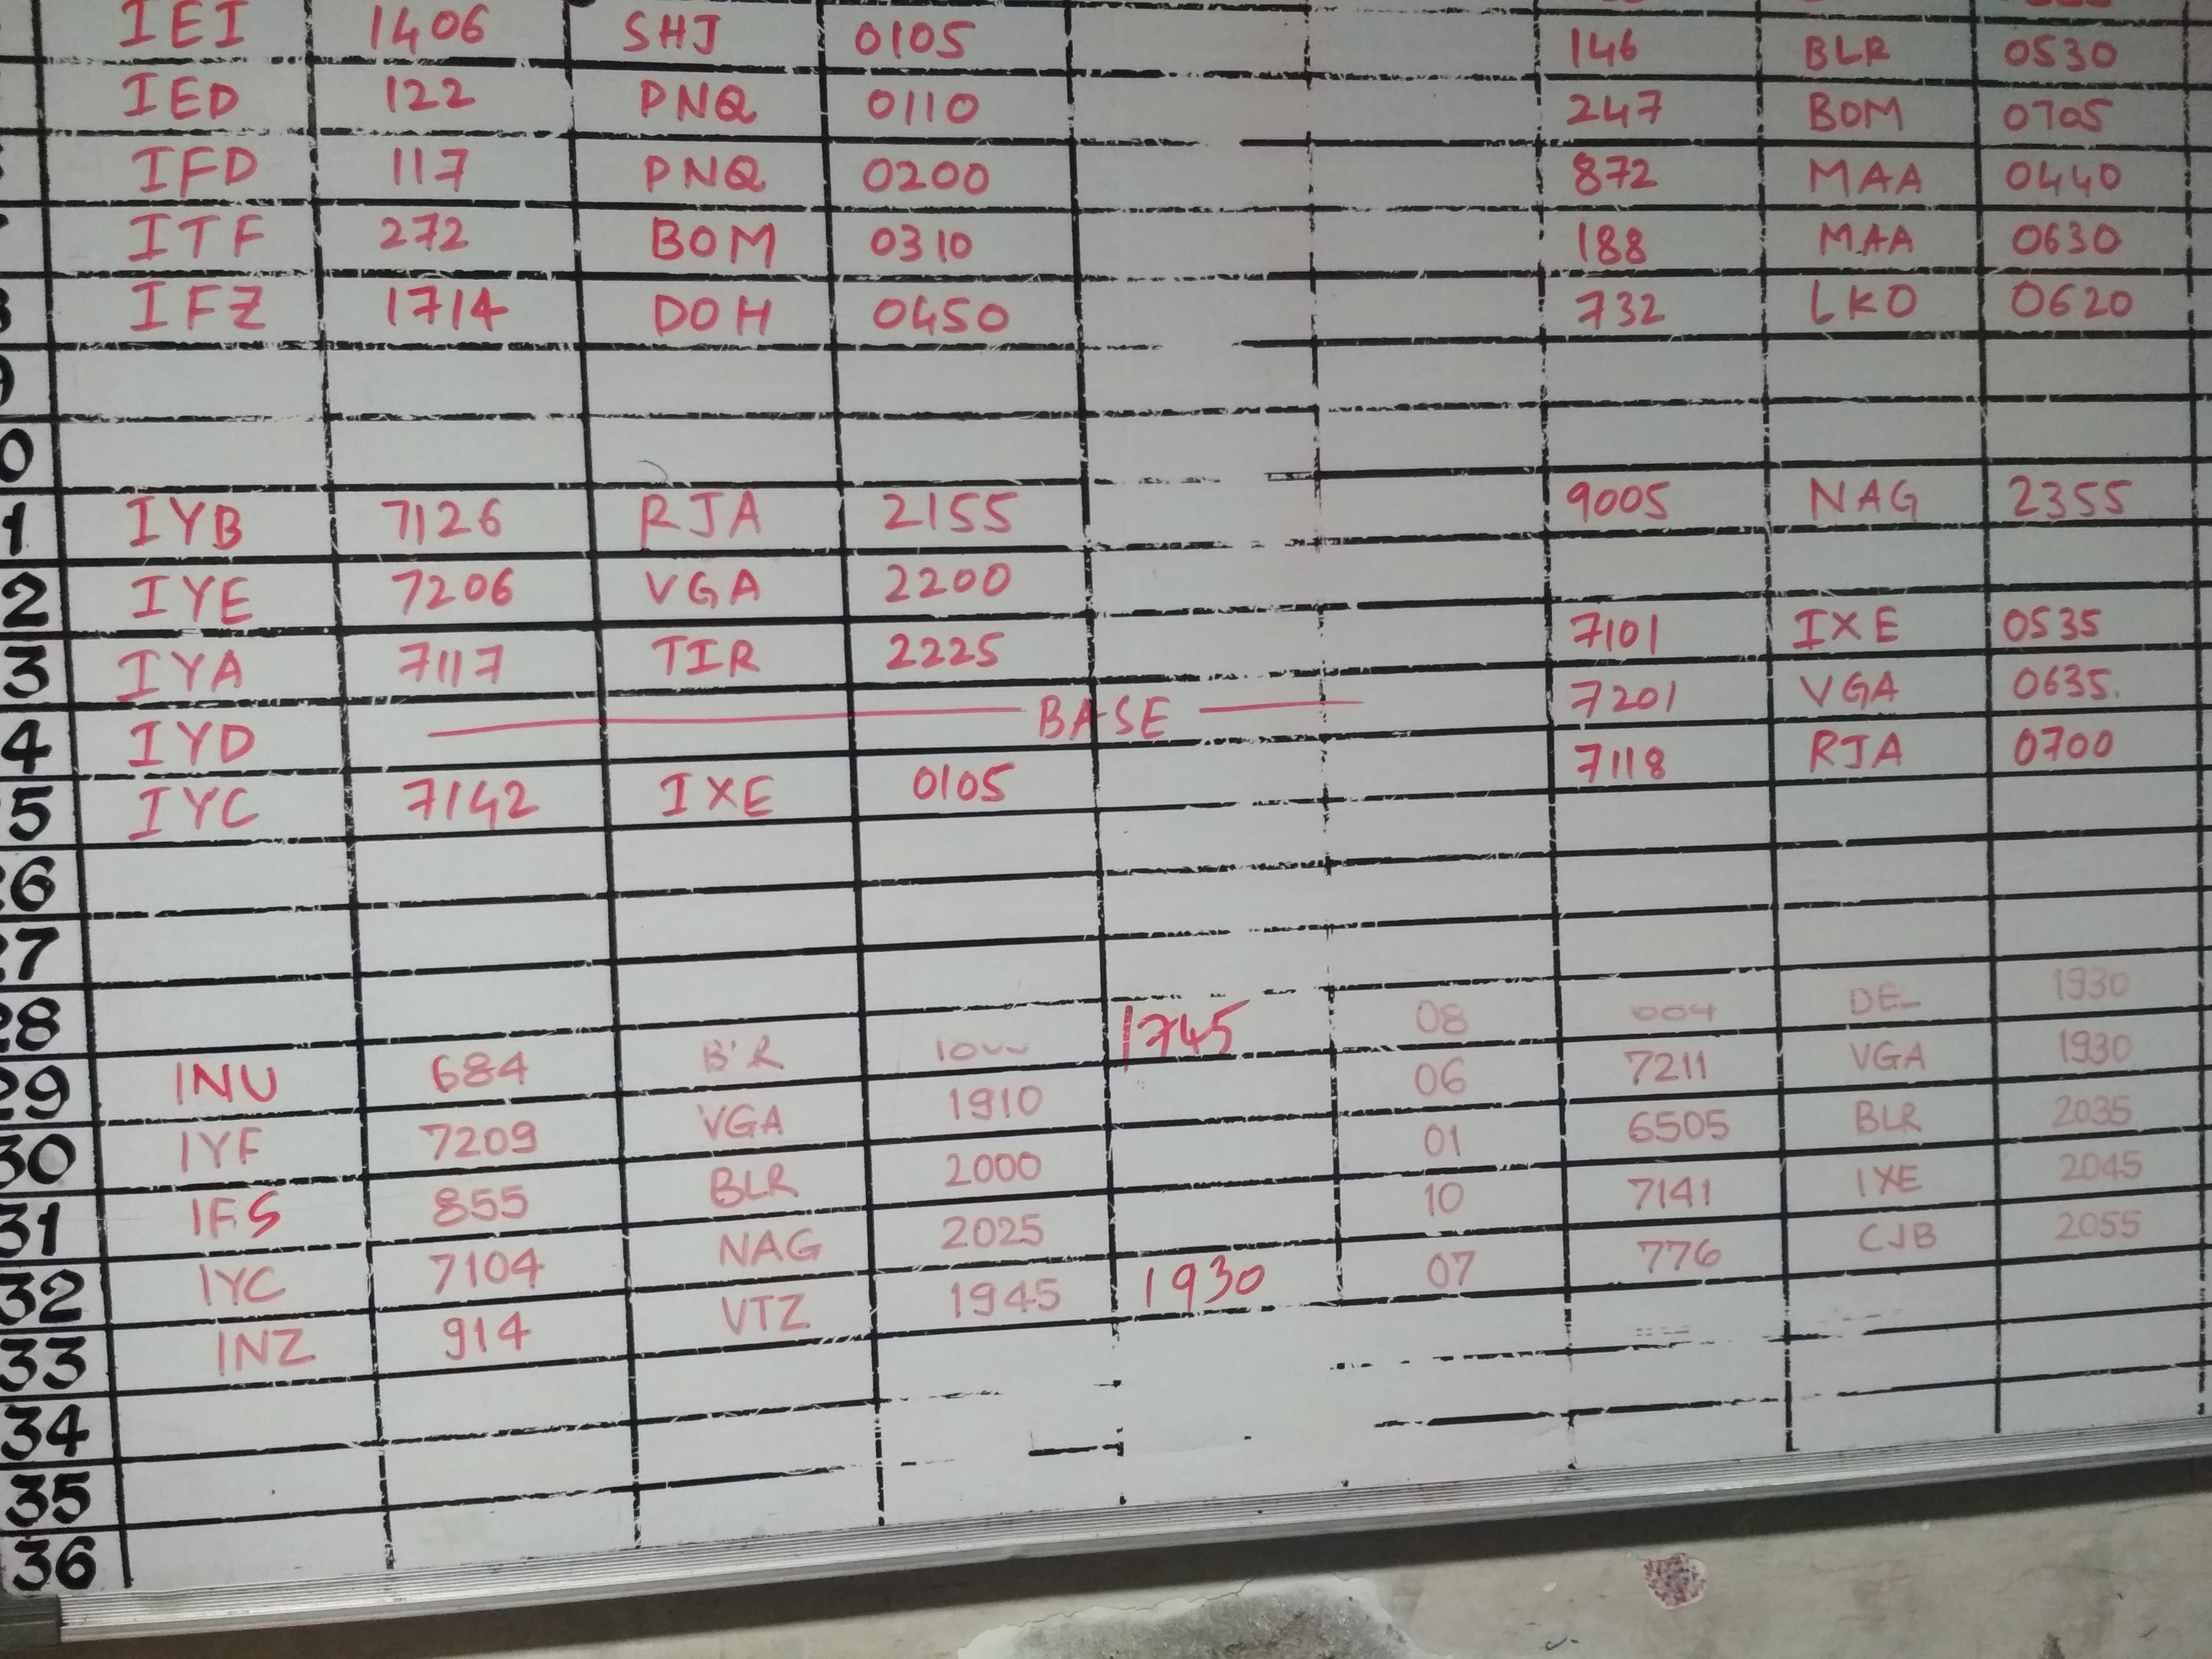 IEI 1406 SHJ 0105 146 BLR 0530
IED 122 PNQ 0110 247 BOM 0705
IFD 117 PNQ 0200 872 MAA 0440
ITF 272 BOM 0310 188 MAA 0630
IFZ 1714 DOH 0450 732 LKO 0620
IYB 7126 RJA 2155 9005 NAG 2355
IYE 7206 VGA 2200
IYA 7117 TIR 2225 7101 IXE 0535
IYD BASE 7201 VGA 0635.
IYC 7142 IXE 0105 7118 RJA 0700
26
27
28
29 INU 684 1745 08 1930
30 IYF 7209 VGA 1910 06 7211 VGA 1930
31 IFS 855 BLR 2000 01 6505 BLR 2035
32 IYC 7104 NAG 2025 10 7141 IXE 2045
33 INZ 914 VTZ 1945 1930 07 776 CJB 2055
34
35
36